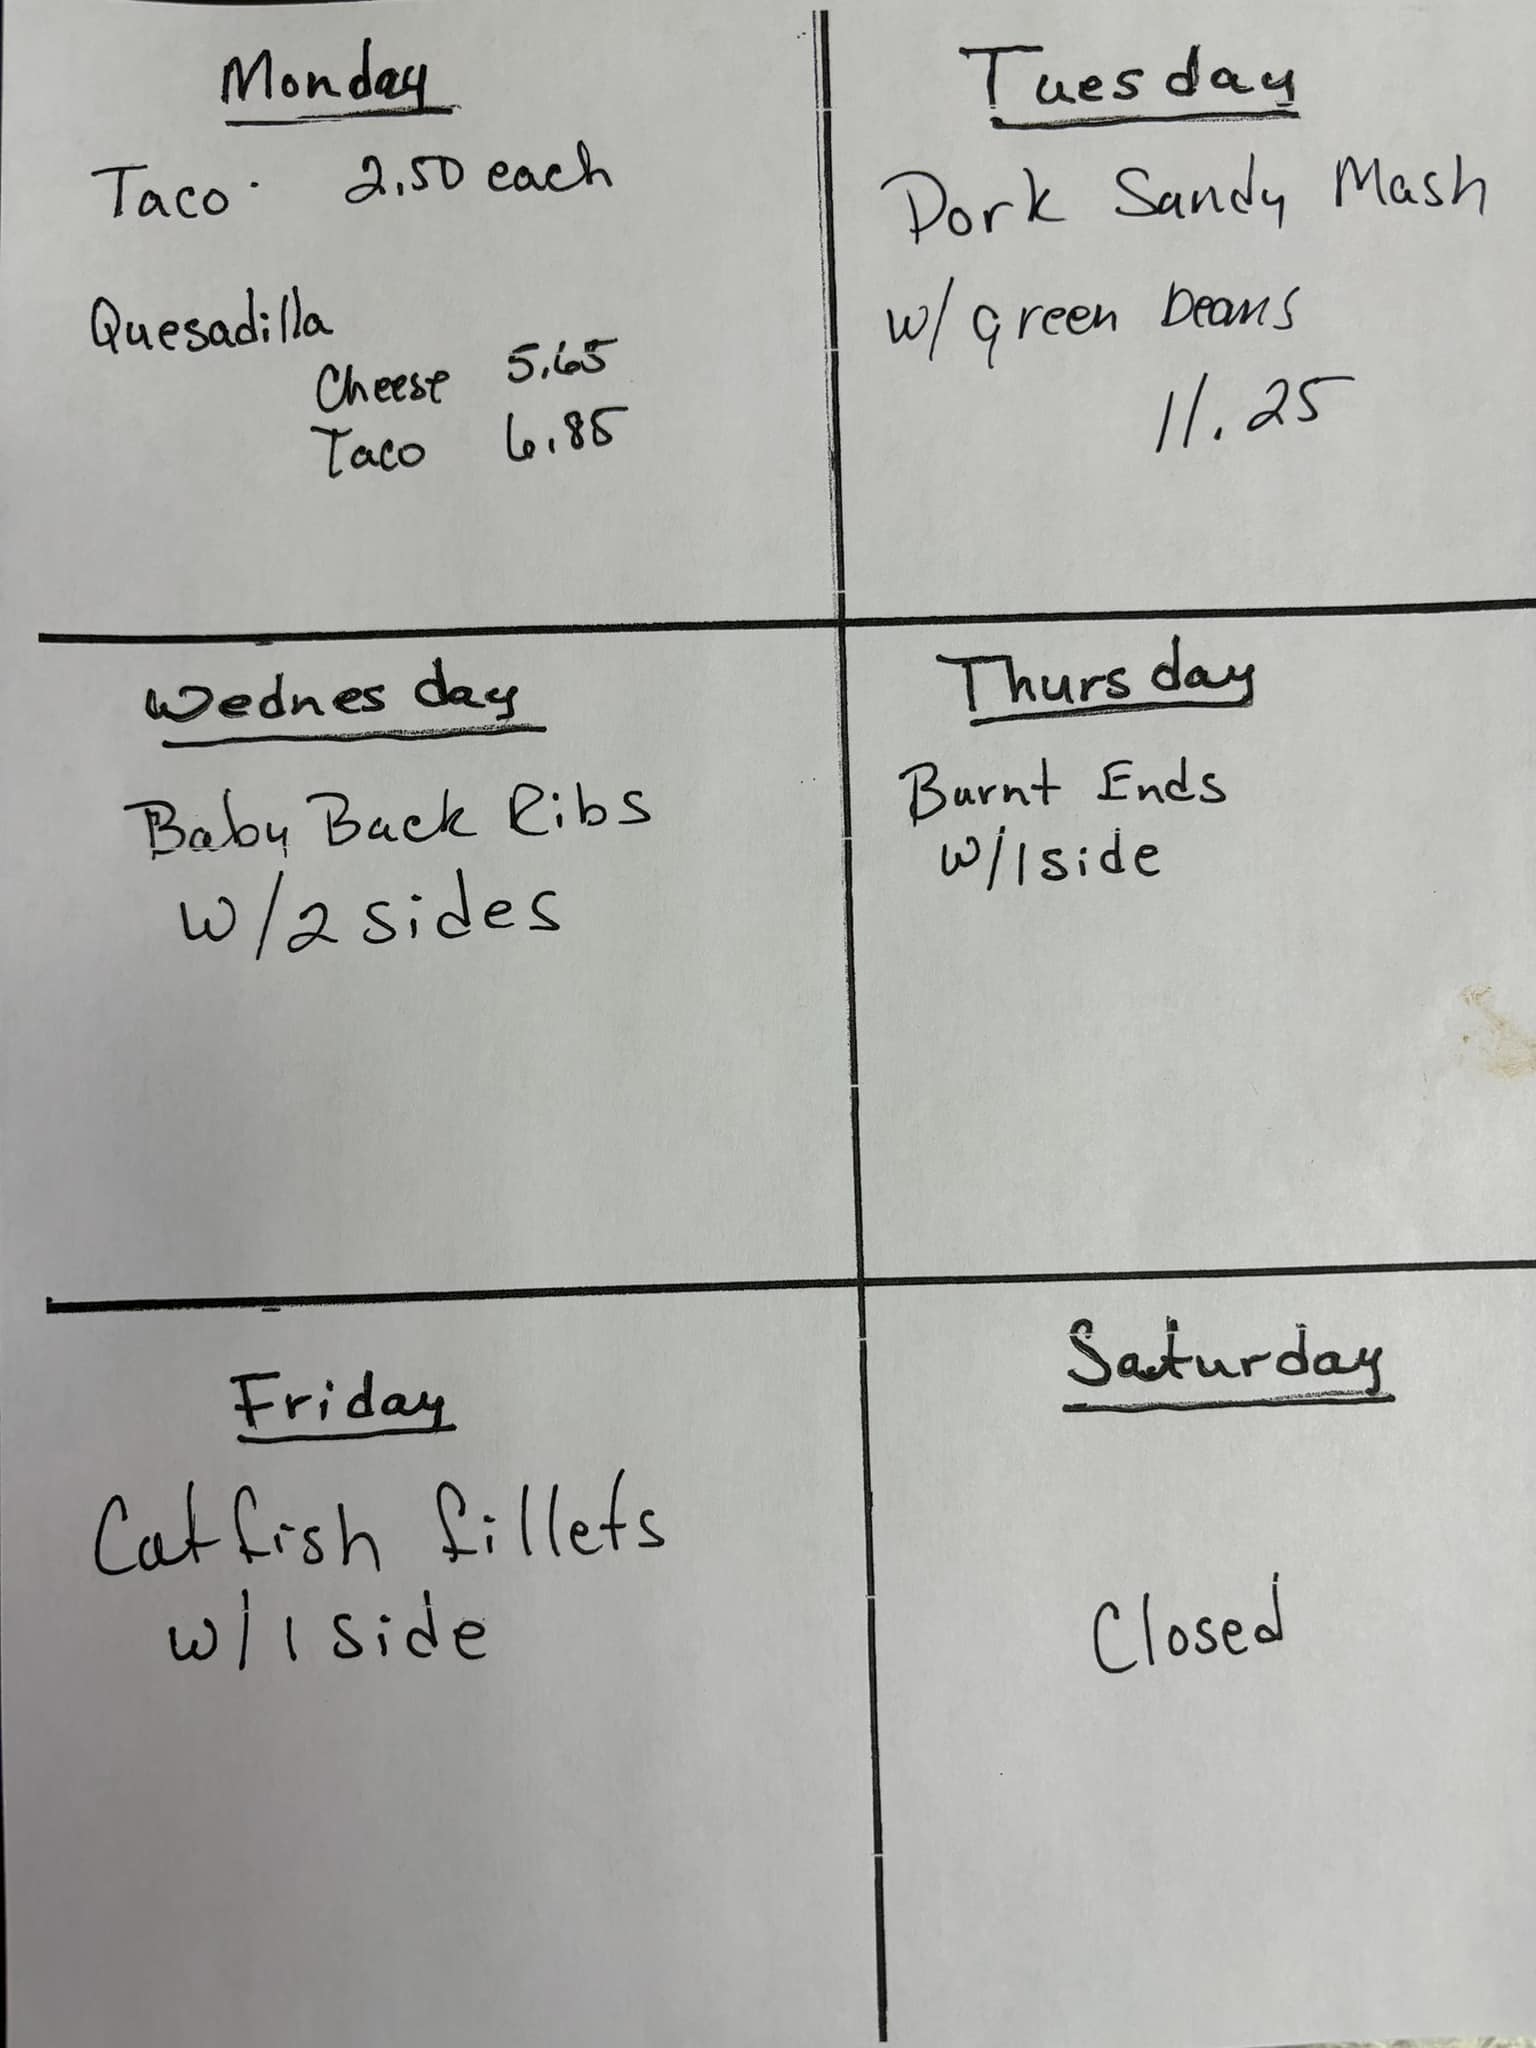 Monday
Taco. 2.50 each
Quesadilla
Cheese 5.65
Taco 6.85
Tuesday
Pork Sandy Mash
w/ green beans
11.25
Wednesday
Baby Back Ribs
w/2 sides
Thursday
Burnt Ends
w/1 side
Friday
Catfish fillets
w/1 side
Saturday
Closed